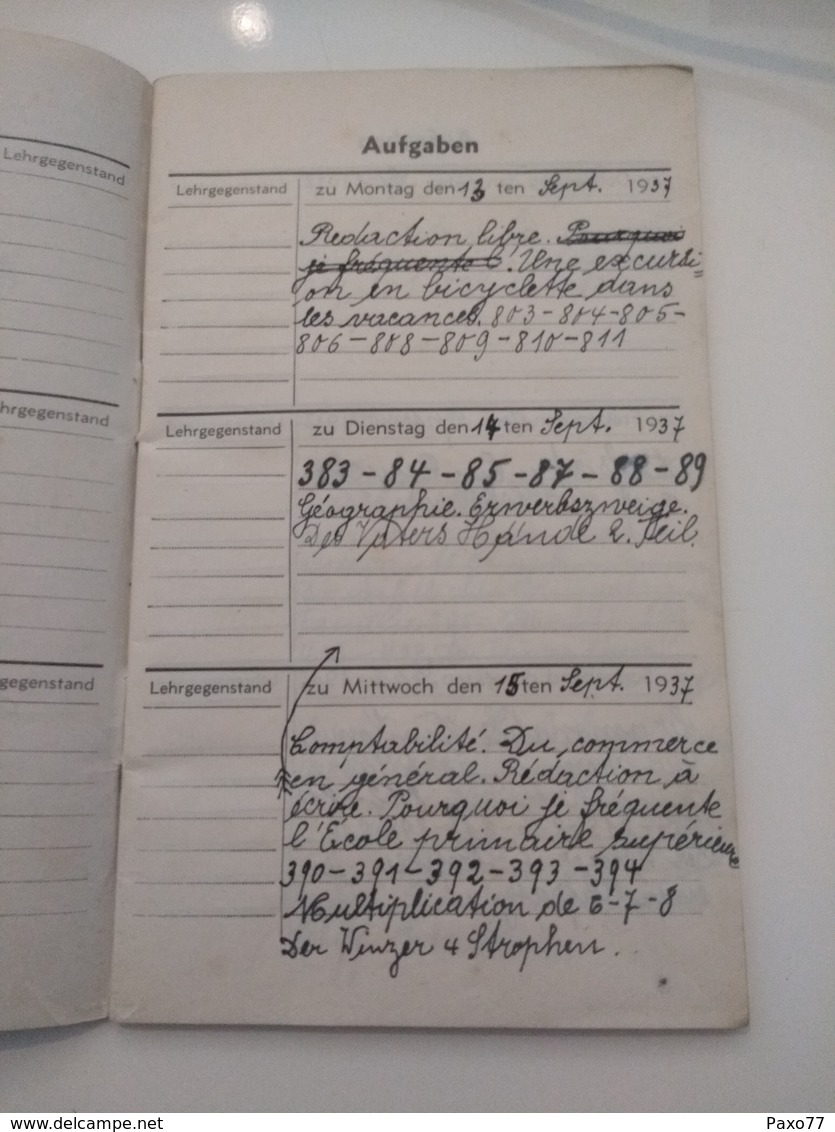 Aufgaben
Lehrgegenstand
Lehrgegenstand zu Montag den 13 ten Sept. 1937
Redaction libre. Pourquoi
je fréquente l'. Une excursi=
on en bicyclette dans
les vacances. 803-804-805-
806-808-809-810-811
hrgegenstand
Lehrgegenstand zu Dienstag den 14 ten Sept. 1937
383-84-85-87-88-89
Géographie. Erwerbszweige.
Des Vaters Hände 2. Teil.
gegenstand
Lehrgegenstand zu Mittwoch den 15 ten Sept. 1937
Comptabilité. Du commerce
en général. Rédaction à
écrire. Pourquoi je fréquente
l'École primaire supérieure
390-391-392-393-394
Multiplication de 6-7-8
Der Winzer 4 Strophen.
delcampe.net
Paxo77